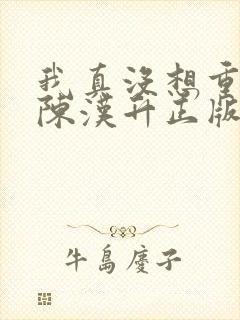 我真沒想重
陳漢升正版
牛島慶子